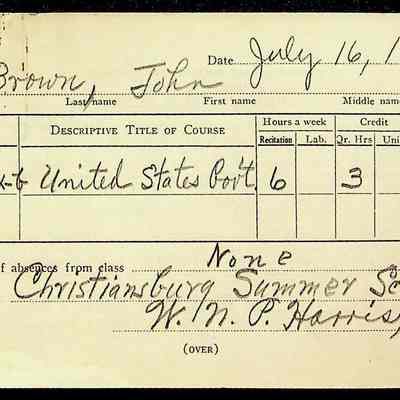 Date July 16, 1
Brown, John
Last name First name Middle nam
DESCRIPTIVE TITLE OF COURSE Hours a week Credit
Recitation Lab. Qr. Hrs Uni
United States Gov't. 6 3
f absences from class None
Christiansburg Summer Sc
W. N. P. Harris,
(OVER)